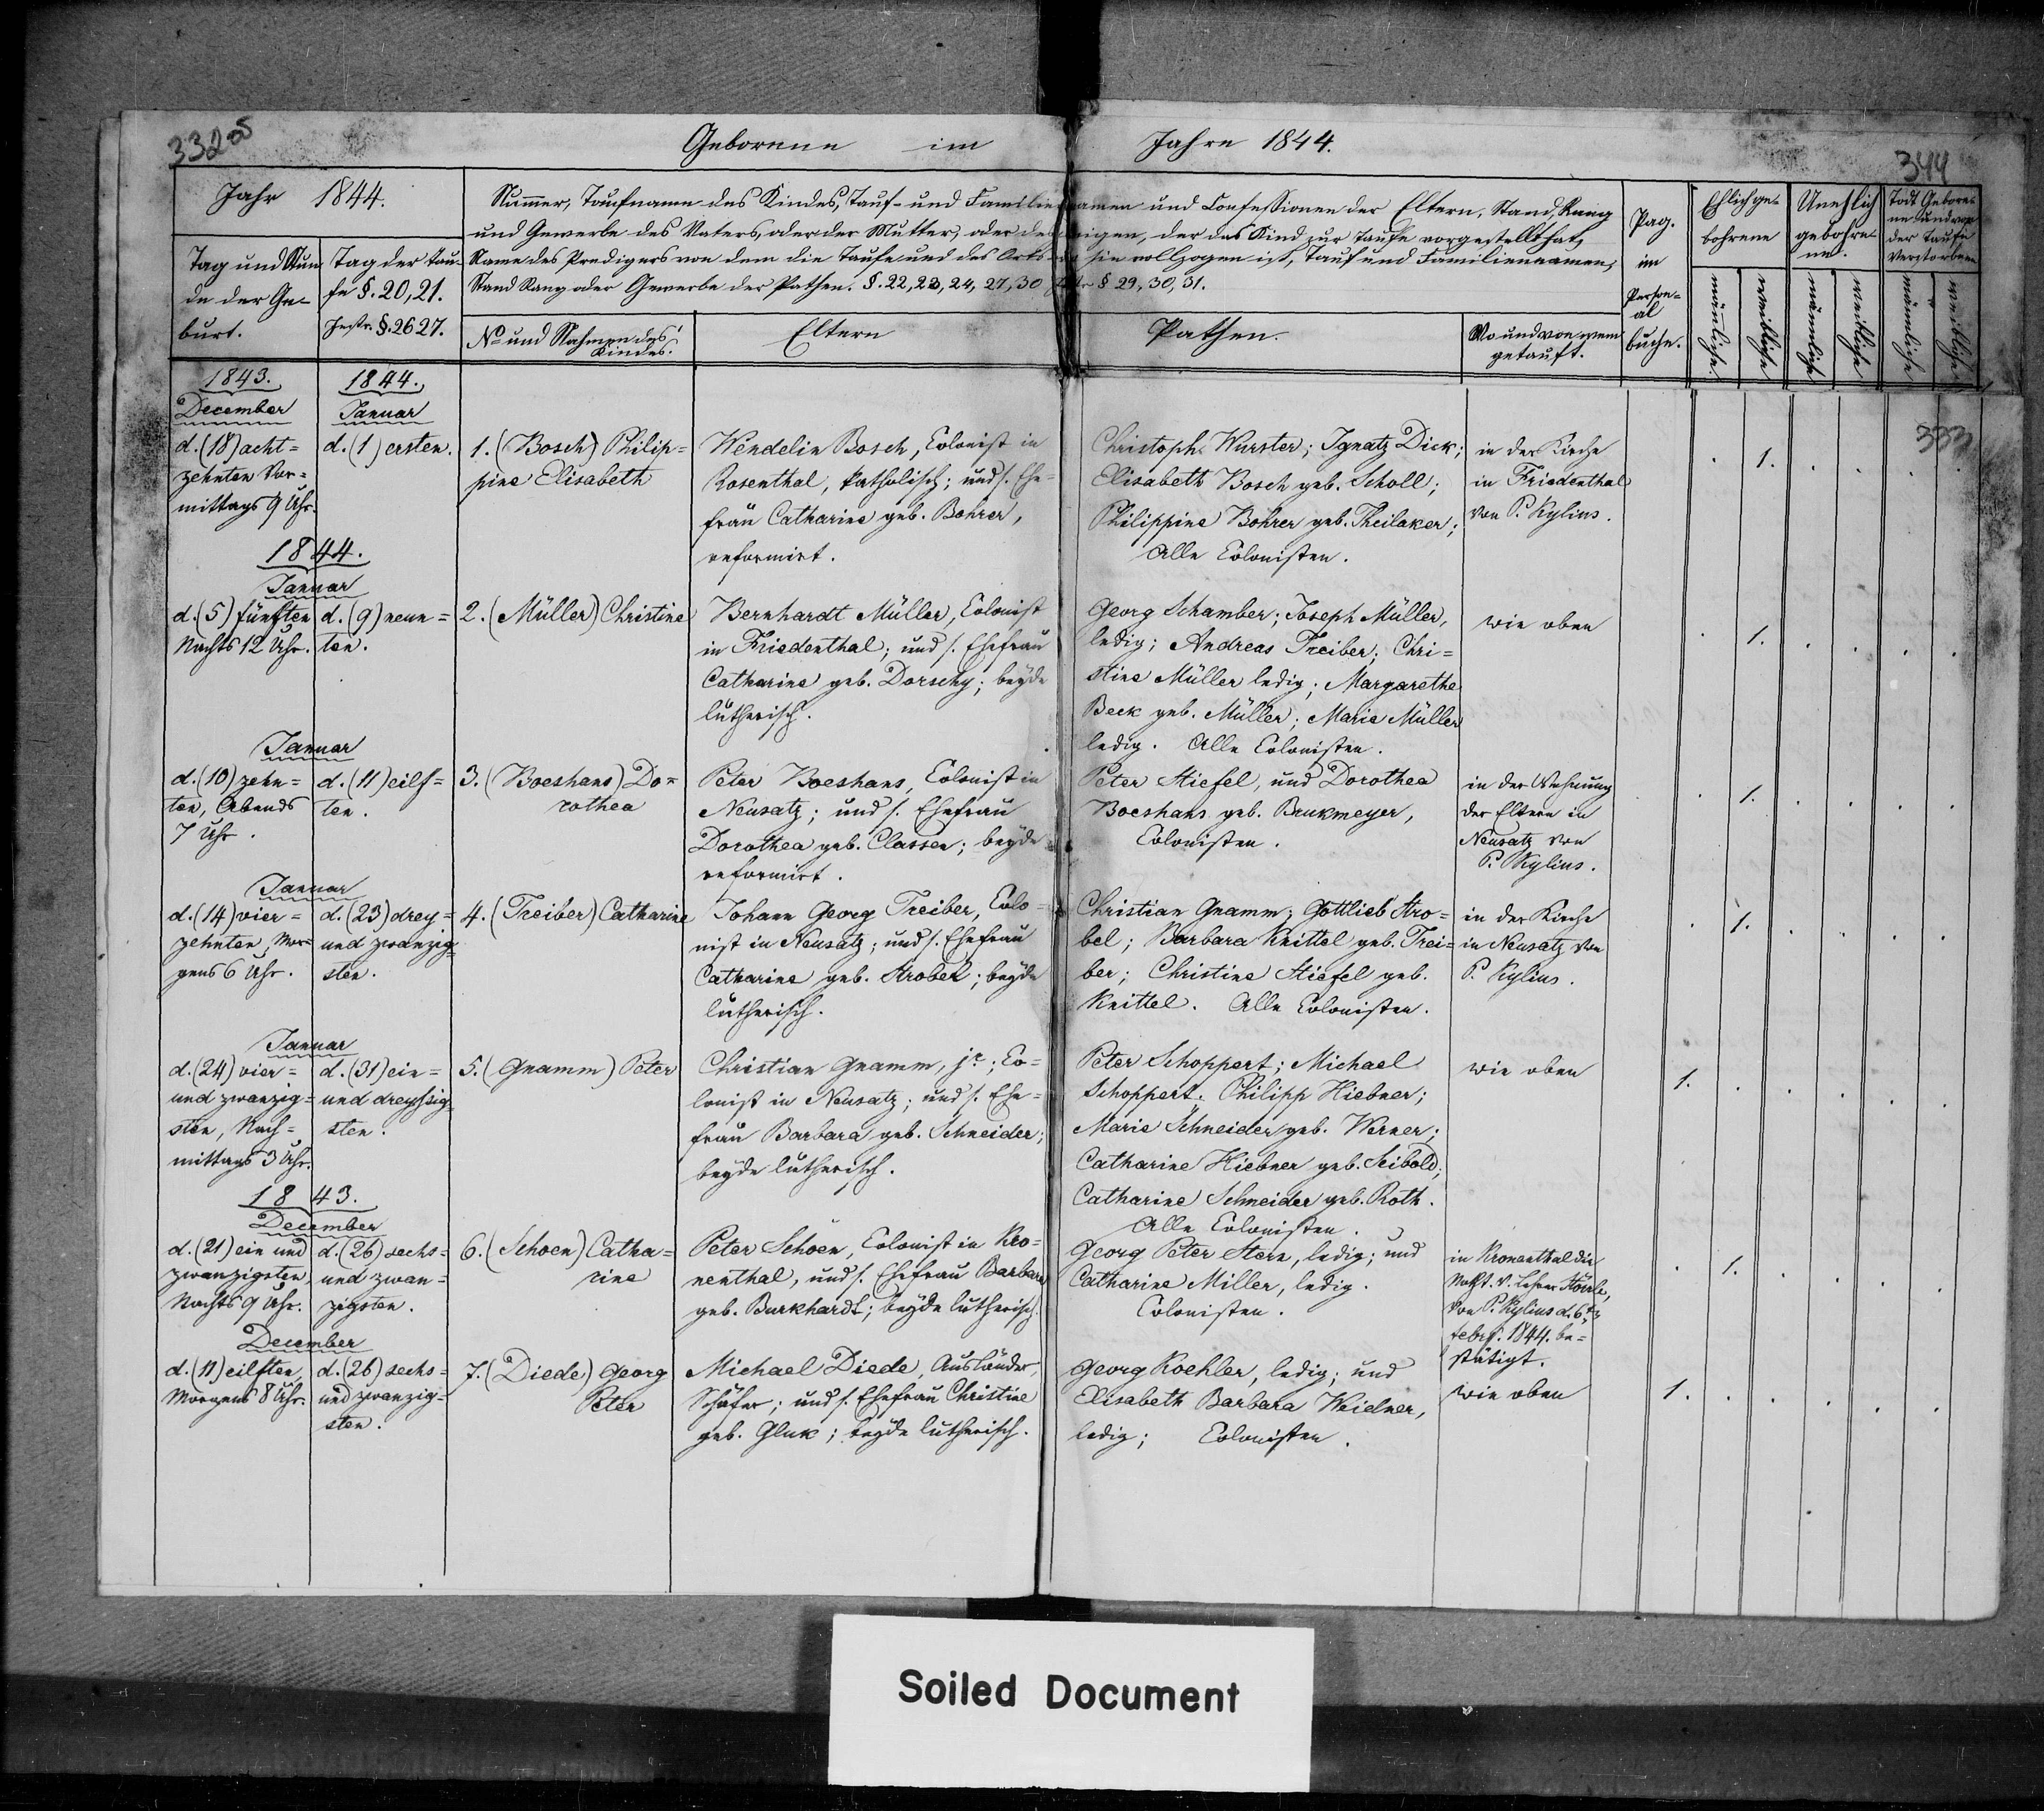 332 25
Geborene im Jahre 1844.
344
Jahr 1844.
Tag und Stun-
de der Ge-
burt.
Tag der Tau-
fe §. 20, 21.
Instr. §. 26 27.
Nummer, Taufname des Kindes, Tauf- und Familiennamen und Confessionen der Eltern, Stand, Rang
und Gewerbe des Vaters, oder der Mutter, oder desjenigen, der das Kind zur Taufe vorgestellt hat,
Name des Predigers von dem die Taufe und des Orts wo sie vollzogen ist, Tauf und Familiennamen,
Stand Rang oder Gewerbe der Pathen. §. 22, 23, 24, 27, 30 § 29, 30, 31.
No und Nahmen des
Kindes.
Eltern
Pathen.
Wo und von wem
getauft.
Pag.
im
Person=
al
buche.
Ehlich ge-
bohrene
Unehlich
gebohre-
ne.
Todt Gebore-
ne und vor
der Taufe
Verstorbene
männliche.
weibliche
männliche
weibliche
männliche
weibliche
333
1843.
December
1844.
Januar
d. (18) acht=
zehnten Vor=
mittags 9 Uhr.
d. (1) ersten.
1. (Bosch) Philip=
pine Elisabeth
Wendelin Bosch, Colonist in
Rosenthal, katholisch; und s. Ehe=
frau Catharine geb. Bohrer,
reformirt.
Christoph Wurster; Ignatz Dick;
Elisabeth Bosch geb. Scholl;
Philippine Bohrer geb. Theilaker;
Alle Colonisten.
in der Kirche
in Friedenthal
von P. Kylius.
1.
1844.
Januar
d. (5) fünften
Nachts 12 Uhr.
d. (9) neun=
ten.
2. (Müller) Christine
Bernhardt Müller, Colonist
in Friedenthal; und s. Ehefrau
Catharine geb. Dorschy; beyde
lutherisch.
Georg Schamber; Joseph Müller,
ledig; Andreas Treiber; Chri=
stine Müller ledig; Margarethe
Beck geb. Müller; Marie Müller
ledig. Alle Colonisten.
wie oben
1.
Januar
d. (10) zehn=
ten, Abends
7 Uhr.
d. (11) eilf=
ten.
3. (Boeshans) Do=
rothea
Peter Boeshans, Colonist in
Neusatz; und s. Ehefrau
Dorothea geb. Classen; beyde
reformirt.
Peter Stiefel, und Dorothea
Boeshans geb. Brukmeyer,
Colonisten.
in der Wohnung
der Eltern in
Neusatz von
P. Kylius.
1.
Januar
d. (14) vier=
zehnten, Mor=
gens 6 Uhr.
d. (23) drey=
und zwanzig=
sten.
4. (Treiber) Catharine
Johann Georg Treiber, Colo=
nist in Neusatz; und s. Ehefrau
Catharine geb. Strobel; beyde
lutherisch.
Christian Gnamm; Gottlieb Stro=
bel; Barbara Knittel geb. Trei=
ber; Christine Stiefel geb.
Knittel. Alle Colonisten.
in der Kirche
in Neusatz von
P. Kylius.
1.
Januar
d. (24) vier=
und zwanzig=
sten, Nach=
mittags 3 Uhr.
d. (31) ein=
und dreyssig=
sten.
5. (Gnamm) Peter
Christian Gnamm, jr; Co=
lonist in Neusatz; und s. Ehe=
frau Barbara geb. Schneider;
beyde lutherisch.
Peter Schoppert; Michael
Schoppert; Philipp Hiebner;
Marie Schneider geb. Werner;
Catharine Hiebner geb. Seibold;
Catharine Schneider geb. Roth.
Alle Colonisten.
wie oben
1.
1843.
December
d. (21) ein und
zwanzigsten,
Nachts 9 Uhr.
d. (26) sechs=
und zwan=
zigsten.
6. (Schoen) Catha=
rine
Peter Schoen, Colonist in Kro=
nenthal, und s. Ehefrau Barbara
geb. Burkhardt; beyde lutherisch.
Georg Peter Stern, ledig; und
Catharine Miller, ledig.
Colonisten.
in Kronenthal die
Notht. v. Lehrer
von P. Kylius d. 6ten
febr. 1844. be=
stätigt.
1.
December
d. (11) eilften,
Morgens 8 Uhr.
d. (26) sechs=
und zwanzig=
sten.
7. (Diede) Georg
Peter
Michael Diede, Ausländer,
Schäfer; und s. Ehefrau Christine
geb. Gluk; beyde lutherisch.
Georg Koehler, ledig; und
Elisabeth Barbara Weidner,
ledig; Colonisten.
wie oben
1.
Soiled Document